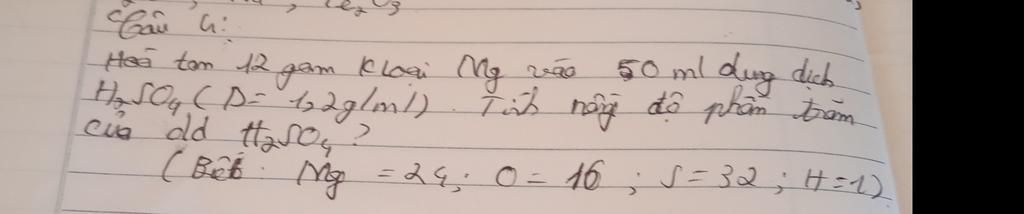 Câu 4:
Hoà tan 12 gam kloại Mg vào 50 ml dung dịch
H₂SO₄ (D= 1,2g/ml). Tính nồng độ phần trăm
của dd H₂SO₄?
(Biết: Mg = 24; O = 16; S = 32; H = 1)